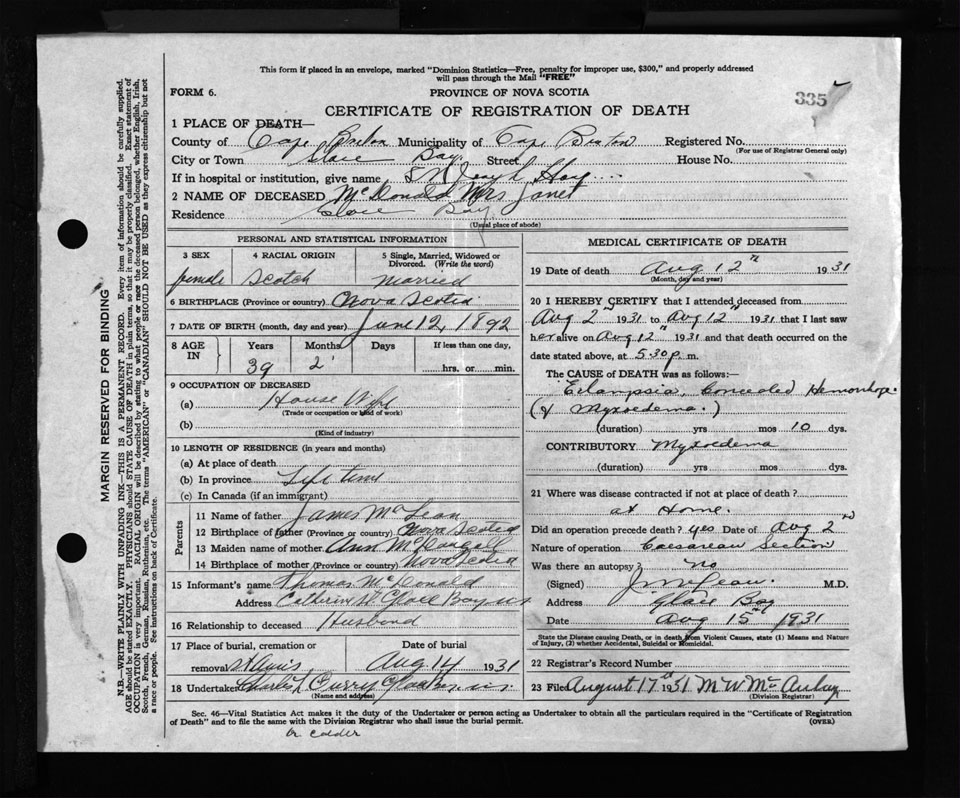 This form if placed in an envelope, marked "Dominion Statistics—Free, penalty for improper use, $300," and properly addressed
will pass through the Mail "FREE"
FORM 6. PROVINCE OF NOVA SCOTIA
335
CERTIFICATE OF REGISTRATION OF DEATH
1 PLACE OF DEATH—
County of Cape Breton Municipality of Cape Breton Registered No.
(For use of Registrar General only)
City or Town Glace Bay Street House No.
If in hospital or institution, give name St Joseph Hosp
2 NAME OF DECEASED McDonald Mrs Janet
Residence Glace Bay
(Usual place of abode)
PERSONAL AND STATISTICAL INFORMATION
3 SEX 4 RACIAL ORIGIN 5 Single, Married, Widowed or
Divorced. (Write the word)
female Scotch married
6 BIRTHPLACE (Province or country) Nova Scotia
7 DATE OF BIRTH (month, day and year) June 12, 1892
8 AGE IN Years Months Days If less than one day,
39 2 hrs. or min.
9 OCCUPATION OF DECEASED
(a) House Wife
(Trade or occupation or kind of work)
(b)
(Kind of industry)
10 LENGTH OF RESIDENCE (in years and months)
(a) At place of death
(b) In province Life time
(c) In Canada (if an immigrant)
Parents
11 Name of father James McLean
12 Birthplace of father (Province or country) Nova Scotia
13 Maiden name of mother Ann McDougall
14 Birthplace of mother (Province or country) Nova Scotia
15 Informant's name Thomas McDonald
Address Catherine St Glace Bay NS
16 Relationship to deceased Husband
17 Place of burial, cremation or Date of burial
removal St Anns, Aug 14 1931
18 Undertaker Charles Curry Glace Bay
(Name and address)
MEDICAL CERTIFICATE OF DEATH
19 Date of death Aug 12th 1931
(Month, day and year)
20 I HEREBY CERTIFY that I attended deceased from
Aug 2" 1931 to Aug 12th 1931 that I last saw
her alive on Aug 12th 1931 and that death occurred on the
date stated above, at 5.30 p. m.
The CAUSE OF DEATH was as follows:
Eclampsia, Concealed Hemorrhage
(& Myxoedema.)
(duration) yrs mos 10 dys.
CONTRIBUTORY Myxoedema
(duration) yrs mos dys.
21 Where was disease contracted if not at place of death?
at Home.
Did an operation precede death? yes Date of Aug 2nd
Nature of operation Caesarean Section
Was there an autopsy? no
(Signed) M.D.
Address Glace Bay
Date Aug 15th 1931
State the Disease causing Death, or in death from Violent Causes, state (1) Means and Nature
of Injury, (2) whether Accidental, Suicidal or Homicidal.
22 Registrar's Record Number
23 Filed August 17th 1931 M W McAulay
(Division Registrar)
Sec. 46—Vital Statistics Act makes it the duty of the Undertaker or person acting as Undertaker to obtain all the particulars required in the "Certificate of Registration
of Death" and to file the same with the Division Registrar who shall issue the burial permit. (OVER)
MARGIN RESERVED FOR BINDING
N.B.—WRITE PLAINLY WITH UNFADING INK—THIS IS A PERMANENT RECORD. Every item of information should be carefully supplied.
AGE should be stated EXACTLY. PHYSICIANS should STATE CAUSE OF DEATH in plain terms, so that it may be properly classified. Exact statement of
OCCUPATION is very important. RACIAL ORIGIN will be described by stating to what people or race the deceased person belonged, whether English, Irish,
Scotch, French, German, Russian, Ruthenian, etc. The terms "AMERICAN" or "CANADIAN" SHOULD NOT BE USED as they express citizenship but not
a race or people. See instructions on back of Certificate.